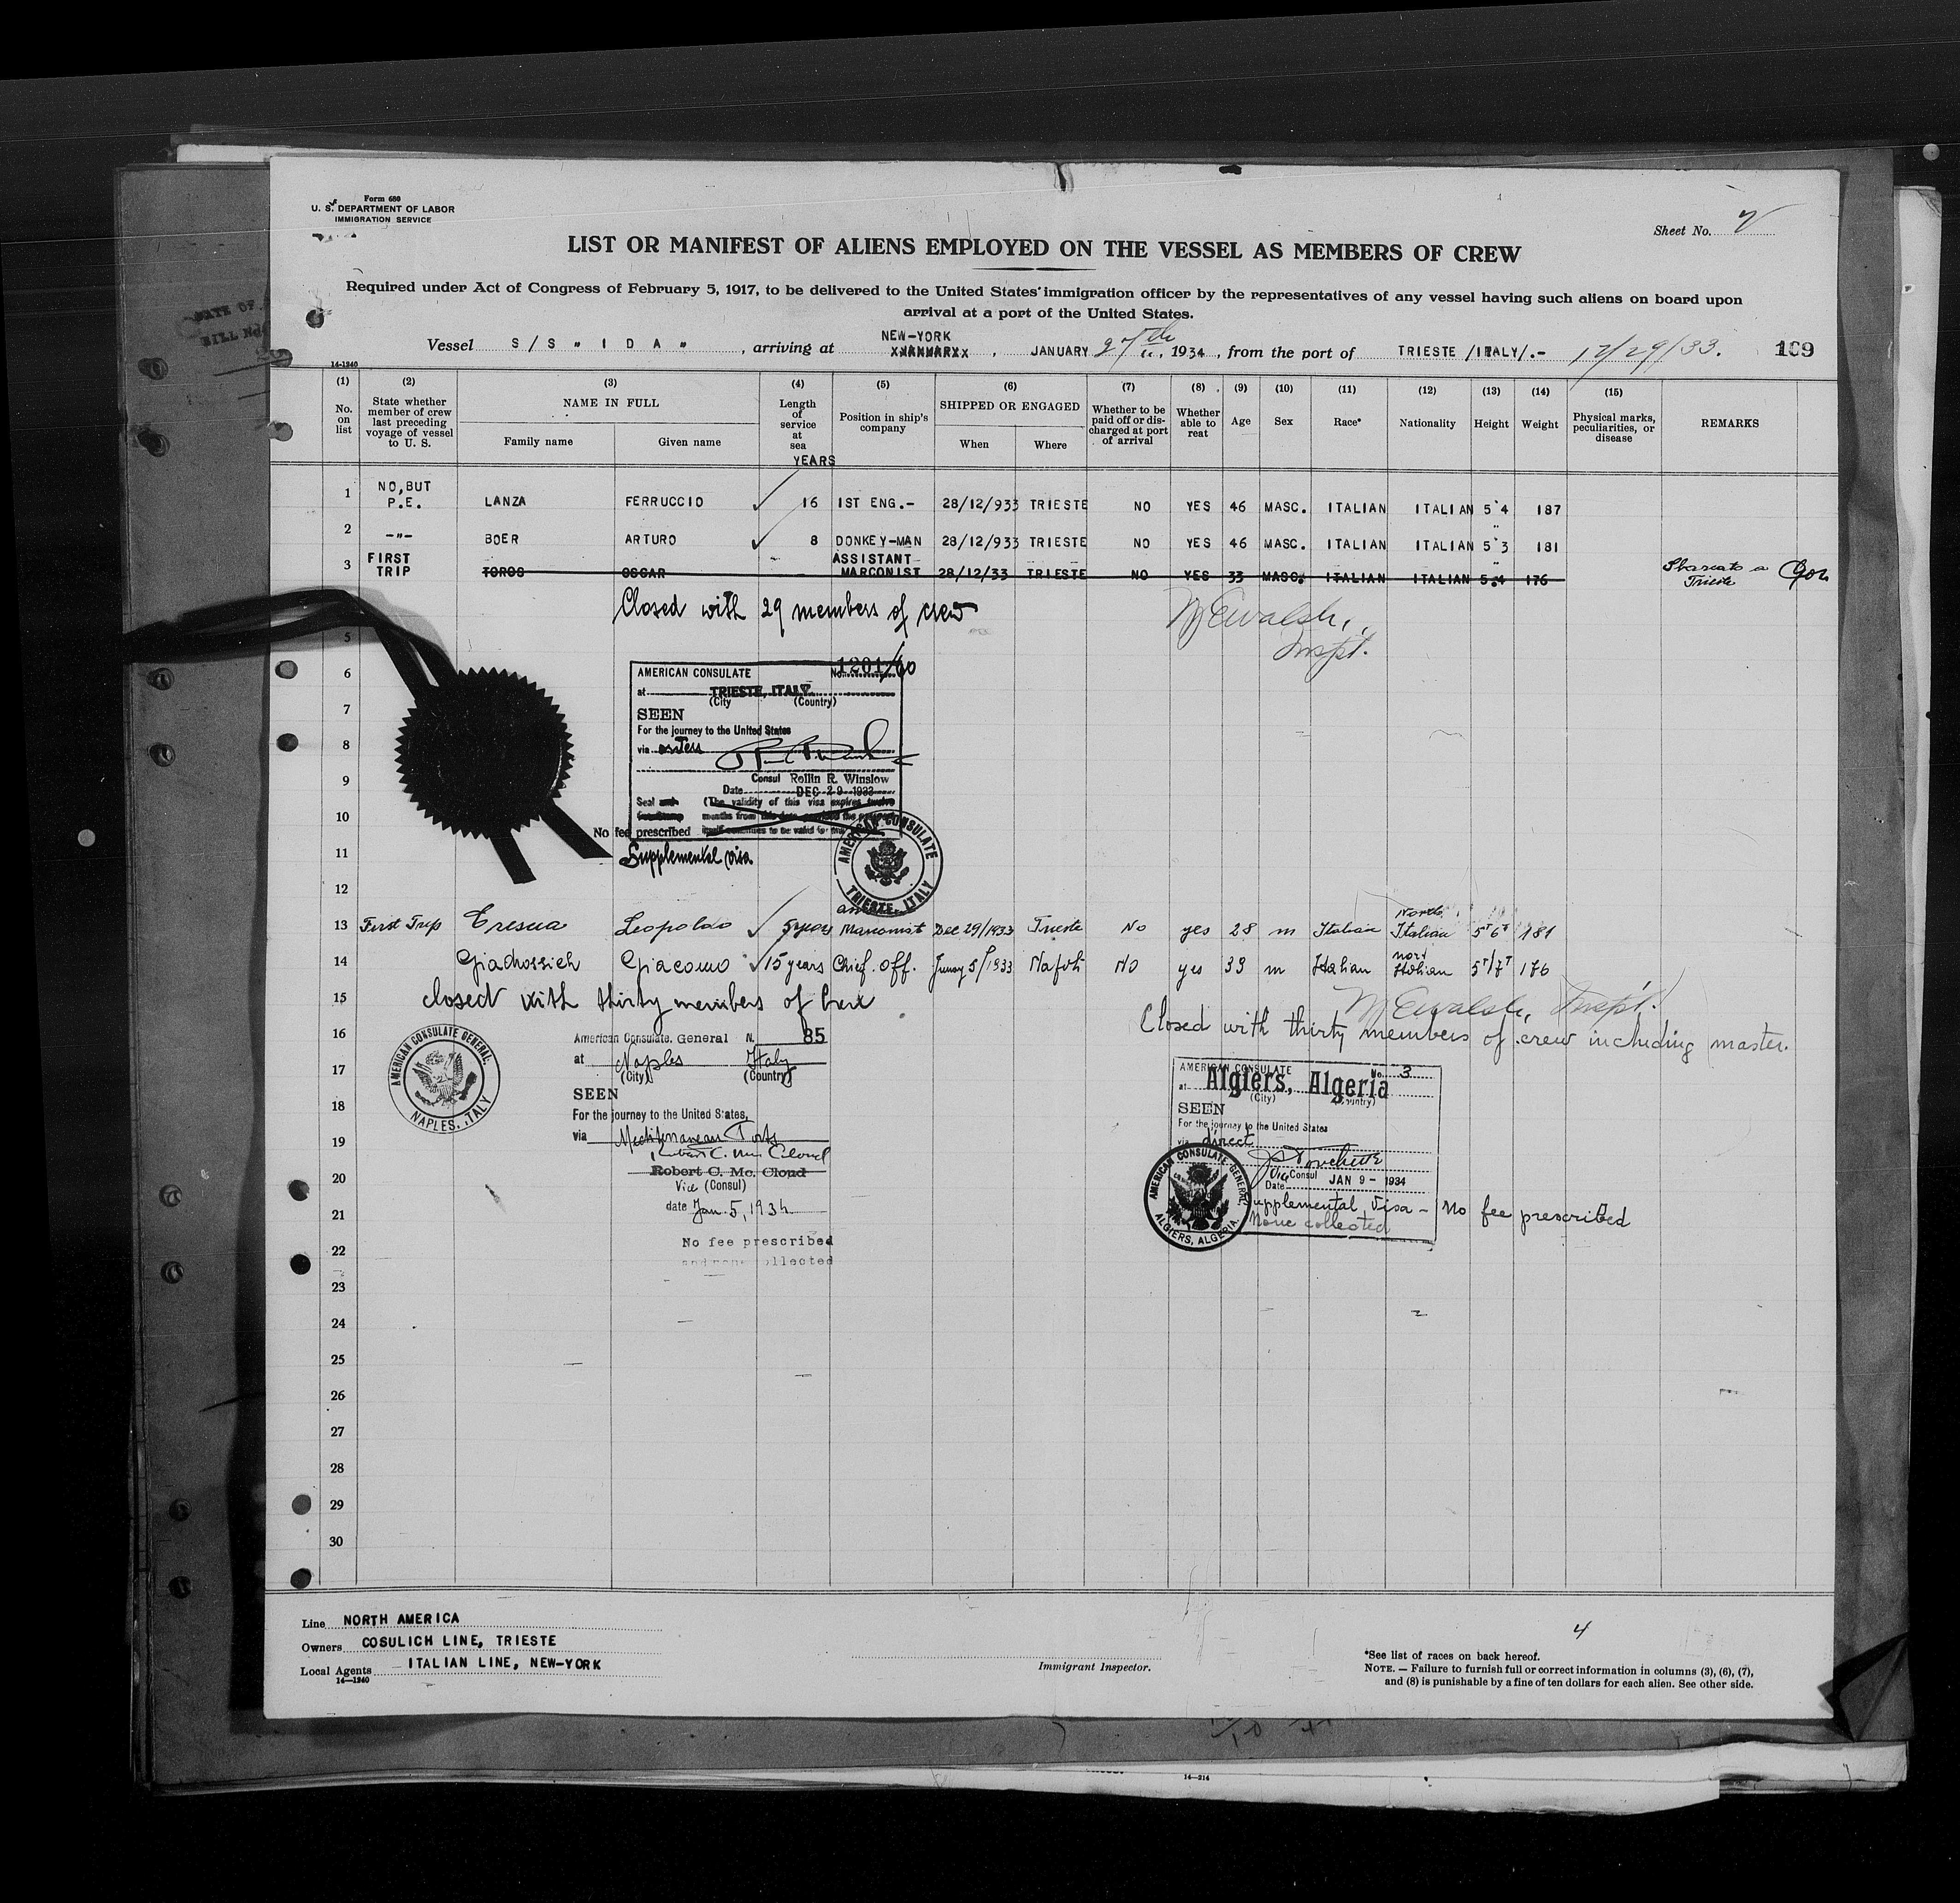 Form 680
U. S. DEPARTMENT OF LABOR
IMMIGRATION SERVICE
Sheet No. 2
LIST OR MANIFEST OF ALIENS EMPLOYED ON THE VESSEL AS MEMBERS OF CREW
Required under Act of Congress of February 5, 1917, to be delivered to the United States immigration officer by the representatives of any vessel having such aliens on board upon
arrival at a port of the United States.
Vessel S/S " I D A ", arriving at NEW-YORK, JANUARY 27th, 1934, from the port of TRIESTE /ITALY/.- 12/29/33. 169
14-1240
(1) (2) (3) (4) (5) (6) (7) (8) (9) (10) (11) (12) (13) (14) (15)
No. on list
State whether member of crew last preceding voyage of vessel to U. S.
NAME IN FULL
Family name
Given name
Length of service at sea
YEARS
Position in ship's company
SHIPPED OR ENGAGED
When
Where
Whether to be paid off or discharged at port of arrival
Whether able to reat
Age
Sex
Race*
Nationality
Height
Weight
Physical marks, peculiarities, or disease
REMARKS
1 NO, BUT P.E. LANZA FERRUCCIO 16 1ST ENG.- 28/12/933 TRIESTE NO YES 46 MASC. ITALIAN ITALIAN 5'4 187
2 -"- BOER ARTURO 8 DONKEY-MAN 28/12/933 TRIESTE NO YES 46 MASC. ITALIAN ITALIAN 5'3 181
3 FIRST TRIP TOROS OSCAR - ASSISTANT MARCONIST 28/12/33 TRIESTE NO YES 33 MASC. ITALIAN ITALIAN 5.4 176 Sbarcato a Trieste
Closed with 29 members of crew
Inspt.
5
6
7
8
9
10
11
12
AMERICAN CONSULATE No. 1201/60
at TRIESTE, ITALY
(City (Country)
SEEN
For the journey to the United States
via
Consul Rollin R. Winslow
Date DEC 29 1933
Seal and (The validity of this visa expires twelve
months from this date
No fee prescribed
Supplemental visa
AMERICAN CONSULATE
TRIESTE, ITALY
13 First Trip Leopoldo 5 years Marconist Dec 29/1933 Trieste No yes 28 m Italian North Italian 5'6" 181
14 Giadrossich Giacomo 15 years Chief. off. 5/1933 Napoli No yes 39 m Italian nort Italian 5'/7" 176
15 closed with thirty members of
Inspt.
16 Closed with thirty members of crew including master.
17
18
19
20
21
22
AMERICAN CONSULATE GENERAL,
NAPLES, ITALY
American Consulate General N. 85
at Naples Italy
(City) (Country)
SEEN
For the journey to the United States,
via Mediterranean Ports
Robert C. Mc. Cloud
Robert C. Mc. Cloud
Vice (Consul)
date Jan. 5, 1934
No fee prescribed
and none collected
AMERICAN CONSULATE No. 3
at Algiers, Algeria
(City) (Country)
SEEN
For the journey to the United States
via direct
Vice Consul
Date JAN 9 - 1934
Supplemental Visa - No fee prescribed
None collected
AMERICAN CONSULATE GENERAL
ALGIERS, ALGERIA.
23
24
25
26
27
28
29
30
Line NORTH AMERICA
Owners COSULICH LINE, TRIESTE
Local Agents ITALIAN LINE, NEW-YORK
14-1240
Immigrant Inspector.
4
*See list of races on back hereof.
NOTE. — Failure to furnish full or correct information in columns (3), (6), (7),
and (8) is punishable by a fine of ten dollars for each alien. See other side.
14-214